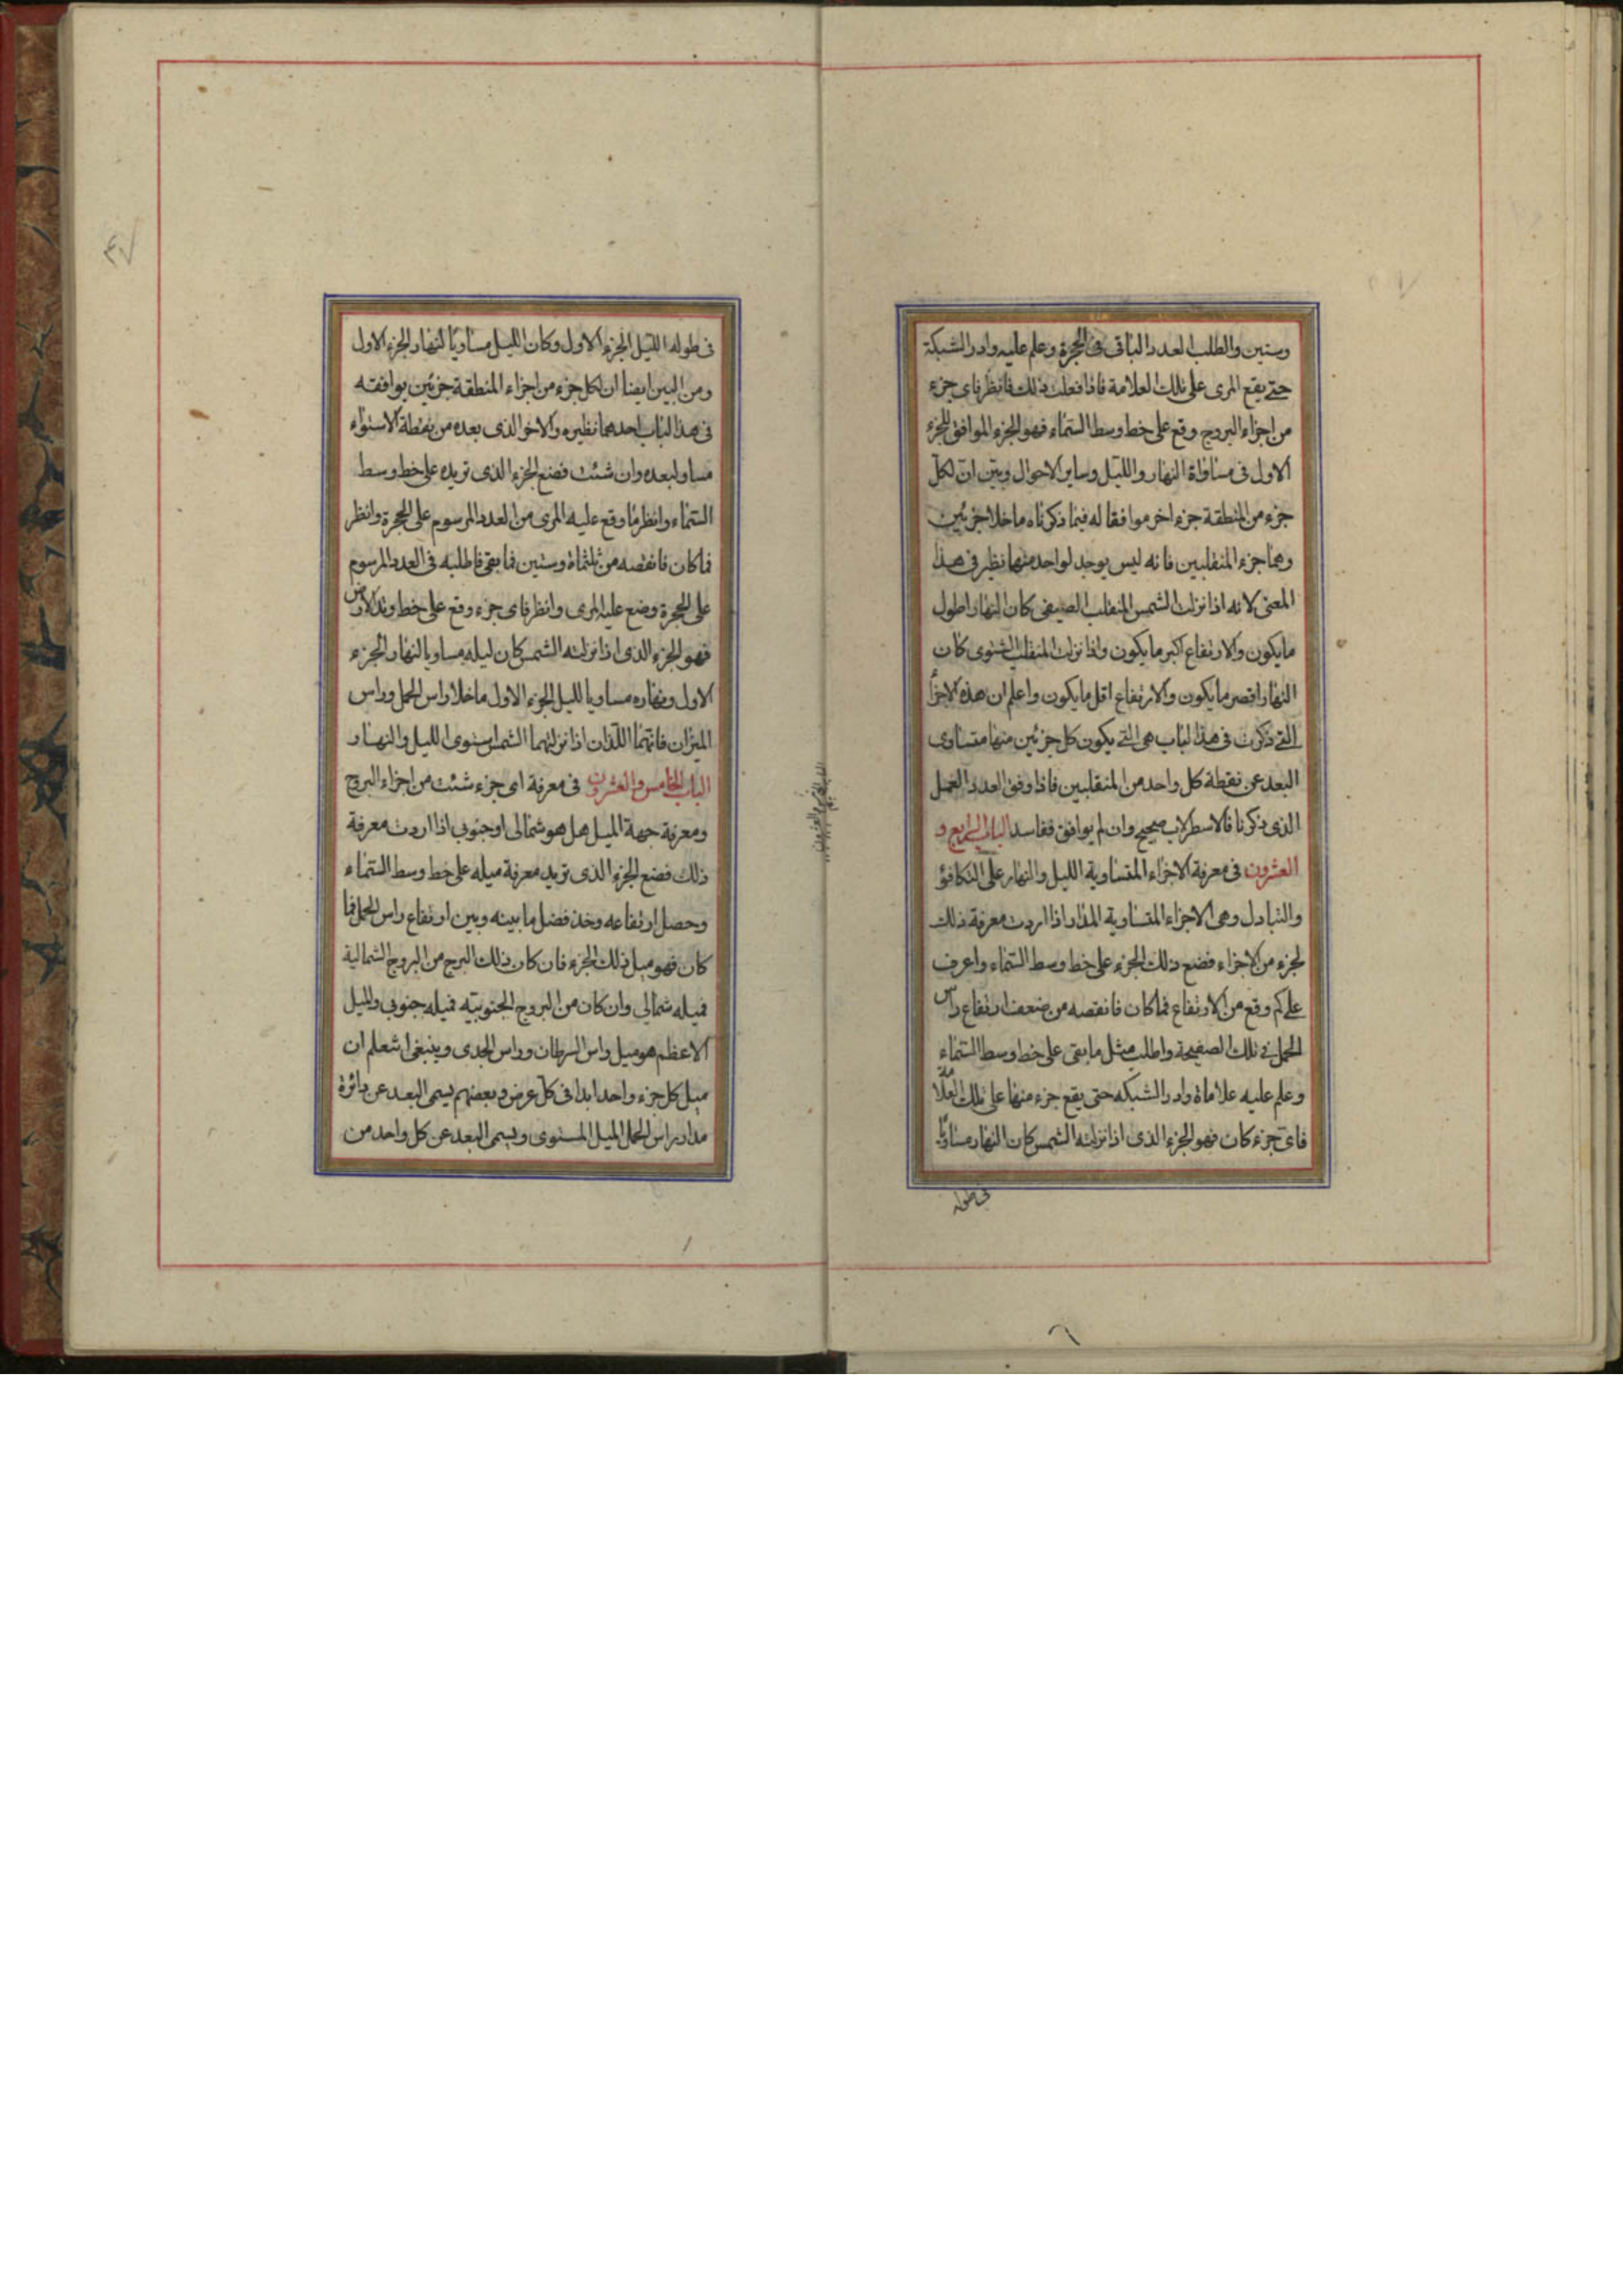 وستين والطلب العدد الباقى فى الحجرة وعلم عليه وادر الشبكة
حتى يقع المرى على تلك العلامة فاذا فعلت ذلك فانظر فاى جزء
من اجزاء البروج وقع على خط وسط السماء فهو الجزء الموافق للجزء
الاول فى مساواة النهار والليل وساير الاحوال وبين ان لكل
جزء من المنطقة جزء اخر موافقا له فيما ذكرناه ما خلا جزئين
وهما جزء المنقلبين فانه ليس يوجد لواحد منهما نظير فى هذا
المعنى لانه اذا نزلت الشمس المنقلب الصيفى كان النهار اطول
ما يكون والارتفاع اكبر ما يكون واذا نزلت المنقلب الشتوى كان
النهار اقصر ما يكون والارتفاع اقل ما يكون واعلم ان هذه الاجزأ
التى ذكرت فى هذا الباب هى التى يكون كل جزئين منها متساوى
البعد عن نقطة كل واحد من المنقلبين فاذا وفق العدد العمل
الذى ذكرنا فالاسطرلاب صحيح وان لم يوافق ففاسد الباب الرابع و
العشرون فى معرفة الاجزاء المتساوية الليل والنهار على التكافؤ
والتبادل وهى الاجزاء المتساوية المدار اذا اردت معرفة ذلك
لجزء من الاجزاء فضع ذلك الجزء على خط وسط السماء واعرف
على كم وقع من الارتفاع فما كان فانقصه من ضعف ارتفاع راس
الحمل فى تلك الصفيحة واطلب مثل ما بقى على خط وسط السماء
وعلم عليه علاماة وادر الشبكه حتى يقع جزء منها على تلك العلامة
فاى جزء كان فهو الجزء الذى اذا نزلته الشمس كان النهار مساويا
فى طوله
فى طوله الليل الجزء الاول وكان الليل مساويا لنهار الجزء الاول
ومن البين ايضا ان لكل جزء من اجزاء المنطقة جزئين يوافقه
فى هذا الباب احدهما نظيره والاخر الذى بعده من نقطة الاستواء
مساو لبعده وان شئت فضع الجزء الذى تريده على خط وسط
السماء وانظر ما وقع عليه المرى من العدد المرسوم على الحجرة وانظر
فما كان فانقصه من ثلثماة وستين فما بقى فاطلبه فى العدد المرسوم
على الحجرة وضع عليه المرى وانظر فاى جزء وقع على خط وتد الارض
فهو الجزء الذى اذا نزلته الشمس كان ليله مساويا لنهار الجزء
الاول ونهاره مساويا لليل الجزء الاول ما خلا راس الحمل وراس
الميزان فانهما اللذان اذا نزلتهما الشمس استوى الليل والنهار
الباب الخامس والعشرون فى معرفة اى جزء شئت من اجزاء البروج
ومعرفة جهة الميل هل هو شمالى او جنوبى اذا اردت معرفة
ذلك فضع الجزء الذى تريد معرفة ميله على خط وسط السماء
وحصل ارتفاعه وخذ فضل ما بينه وبين ارتفاع راس الحمل فما
كان فهو ميل ذلك الجزء فان كان ذلك البرج من البروج الشمالية
فميله شمالى وان كان من البروج الجنوبيه فميله جنوبى والميل
الاعظم هو ميل راس السرطان وراس الجدى وينبغى ان تعلم ان
ميل كل جزء واحد ابدا فى كل عرض وبعضهم يسمى البعد عن دائرة
مدار راس الحمل الميل المستوى ويسمى البعد عن كل واحد من